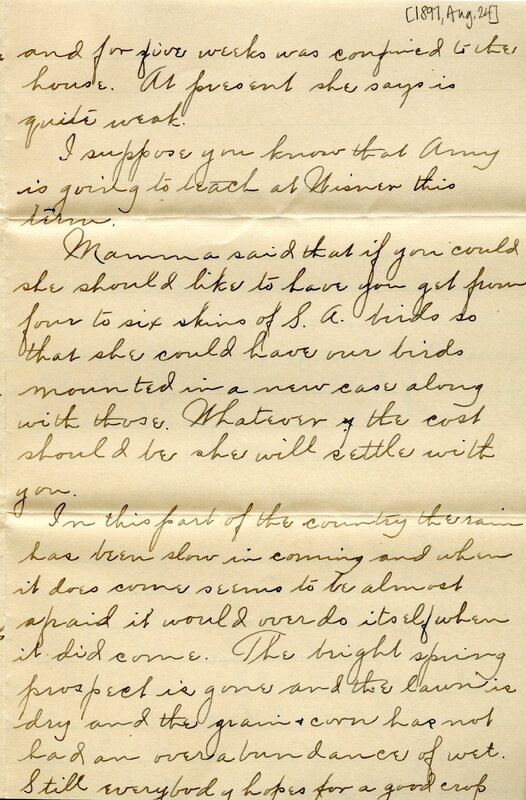 [1897, Aug. 24]
and for five weeks was confined to the
house. At present she says is
quite weak.
I suppose you know that Amy
is going to teach at Wisner this
term.
Mamma said that if you could
she should like to have you get from
four to six skins of S. A. birds so
that she could have our birds
mounted in a new case along
with those. Whatever the cost
should be she will settle with
you.
In this part of the country the rain
has been slow in coming and when
it does come seems to be almost
afraid it would over do itself when
it did come. The bright spring
prospect is gone and the lawn is
dry and the grain & corn has not
had an over abundance of wet.
Still everybody hopes for a good crop